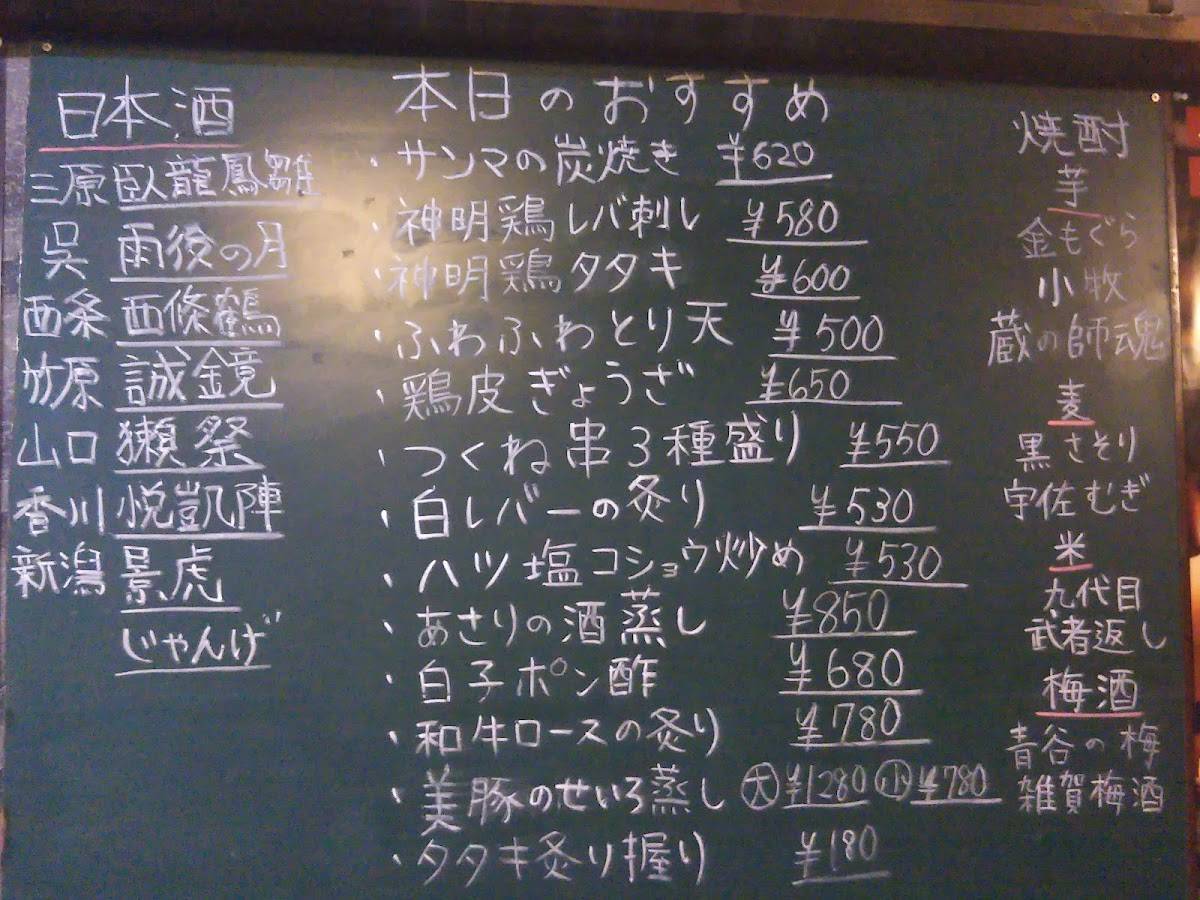 日本酒
三原 臥龍鳳雛
呉 雨後の月
西条 西條鶴
竹原 誠鏡
山口 獺祭
香川 悦凱陣
新潟 景虎
じゃんげ
本日のおすすめ
・サンマの炭焼き ¥620
・神明鶏レバ刺し ¥580
・神明鶏タタキ ¥600
・ふわふわとり天 ¥500
・鶏皮ぎょうざ ¥650
・つくね串3種盛り ¥550
・白レバーの炙り ¥530
・ハツ塩コショウ炒め ¥530
・あさりの酒蒸し ¥850
・白子ポン酢 ¥680
・和牛ロースの炙り ¥780
・美豚のせいろ蒸し 大¥1280 小¥780
・タタキ炙り握り ¥180
焼酎
芋
金もぐら
小牧
蔵の師魂
麦
黒さそり
宇佐むぎ
米
九代目
武者返し
梅酒
青谷の梅
雑賀梅酒